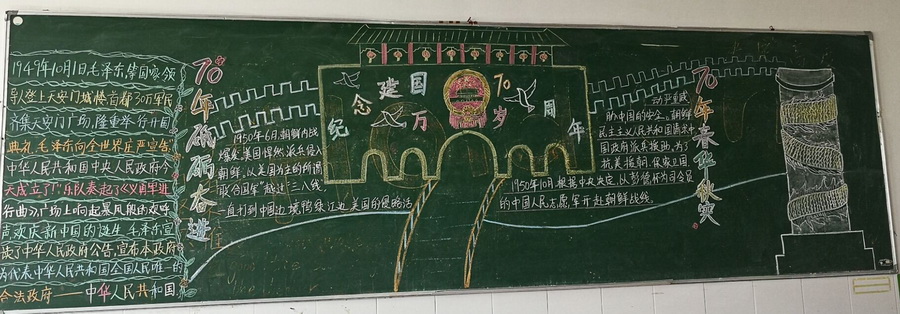 1949年10月1日毛泽东等国家领
导人登上天安门城楼首都30万军民
齐集天安门广场,隆重举行开国
典礼,毛泽东向全世界庄严宣告
中华人民共和国中央人民政府今
天成立了!"乐队奏起了《义勇军进
行曲》,广场上响起暴风般的欢呼
声欢庆新中国的诞生 毛泽东宣
读了中华人民政府公告,宣布本政府
为代表中华人民共和国全国人民唯一的
合法政府——中华人民共和国
70年砥砺奋进
1950年6月,朝鲜内战
爆发,美国悍然派兵侵入
朝鲜,以美国为主的所谓
"联合国军"越过"三八线"
一直打到中国边境鸭绿江边 美国的侵略活
纪念建国70周年
万岁
动严重威
胁中国的安全。朝鲜
民主主义人民共和国请求中
国政府派兵援助,为了
抗美援朝,保家卫国
1950年10月,根据中央决定,以彭德怀为司令员
的中国人民志愿军开赴朝鲜战线。
70年春华秋实